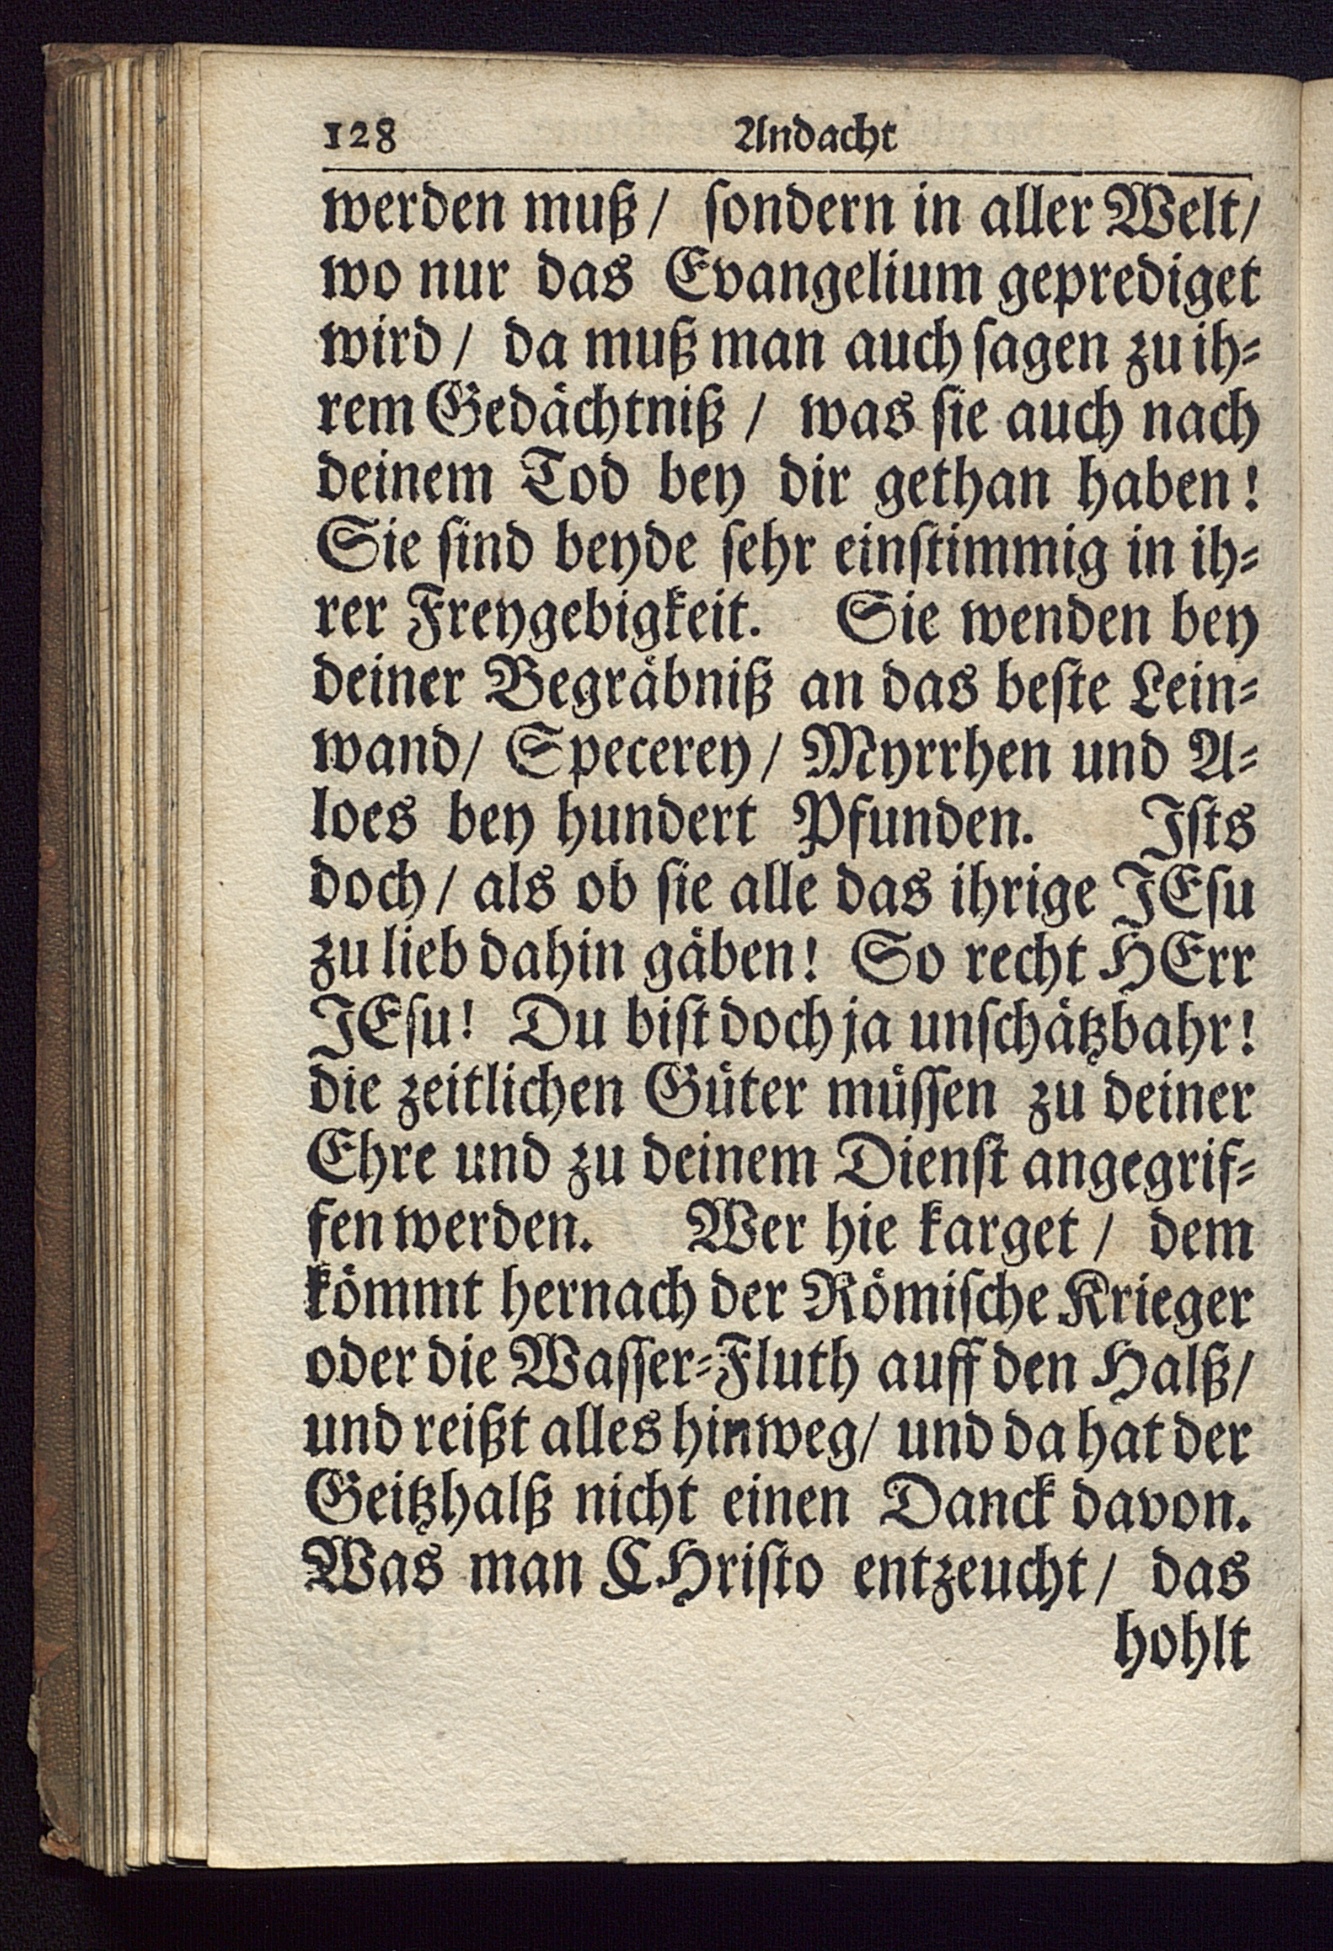 128 Andacht
werden muß/ ſondern in aller Welt/
wo nur das Evangelium geprediget
wird/ da muß man auch ſagen zu ih⸗
rem Gedaͤchtniß / was ſie auch nach
deinem Tod bey dir gethan haben!
Sie ſind beyde ſehr einſtimmig in ih⸗
rer Freygebigkeit. Sie wenden bey
deiner Begraͤbniß an das beſte Lein⸗
wand/ Specerey/ Myrrhen und A⸗
loes bey hundert Pfunden. Iſts
doch/ als ob ſie alle das ihrige JEſu
zu lieb dahin gaͤben! So recht HErr
JEſu! Du biſt doch ja unſchaͤtzbahr!
die zeitlichen Guͤter muͤſſen zu deiner
Ehre und zu deinem Dienſt angegrif⸗
fen werden. Wer hie karget / dem
koͤmmt hernach der Roͤmiſche Krieger
oder die Waſſer⸗Fluth auff den Halß/
und reißt alles hinweg/ und da hat der
Geitzhalß nicht einen Danck davon.
Was man CHriſto entzeucht/ das
hohlt